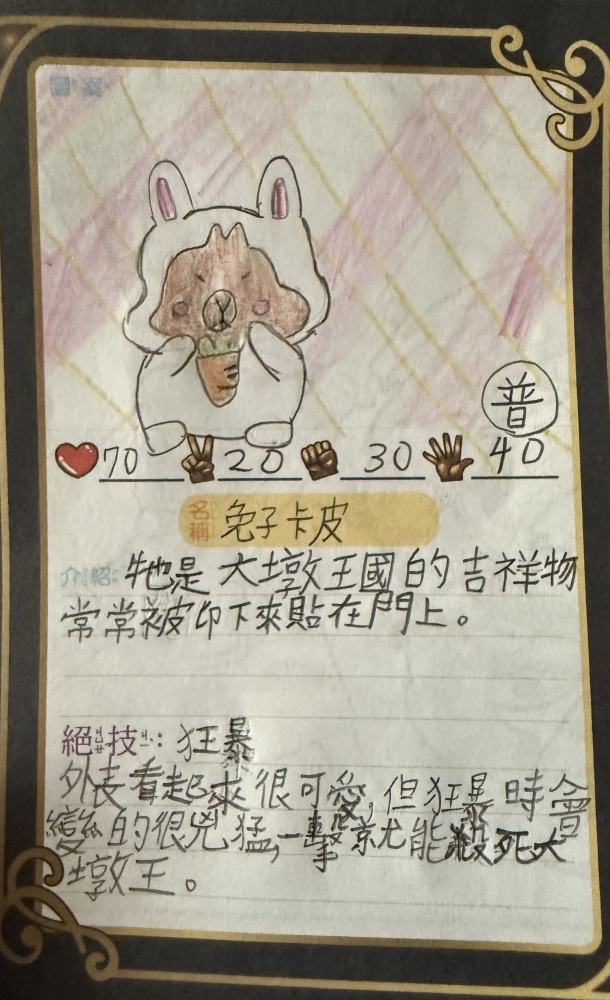 圖案
普
70 20 30 40
名稱 兔子卡皮
介紹: 牠是大墩王國的吉祥物
常常被印下來貼在門上。
絕技: 狂暴
外表看起來很可愛,但狂暴時會
變的很兇猛,一擊就能殺死大
墩王。